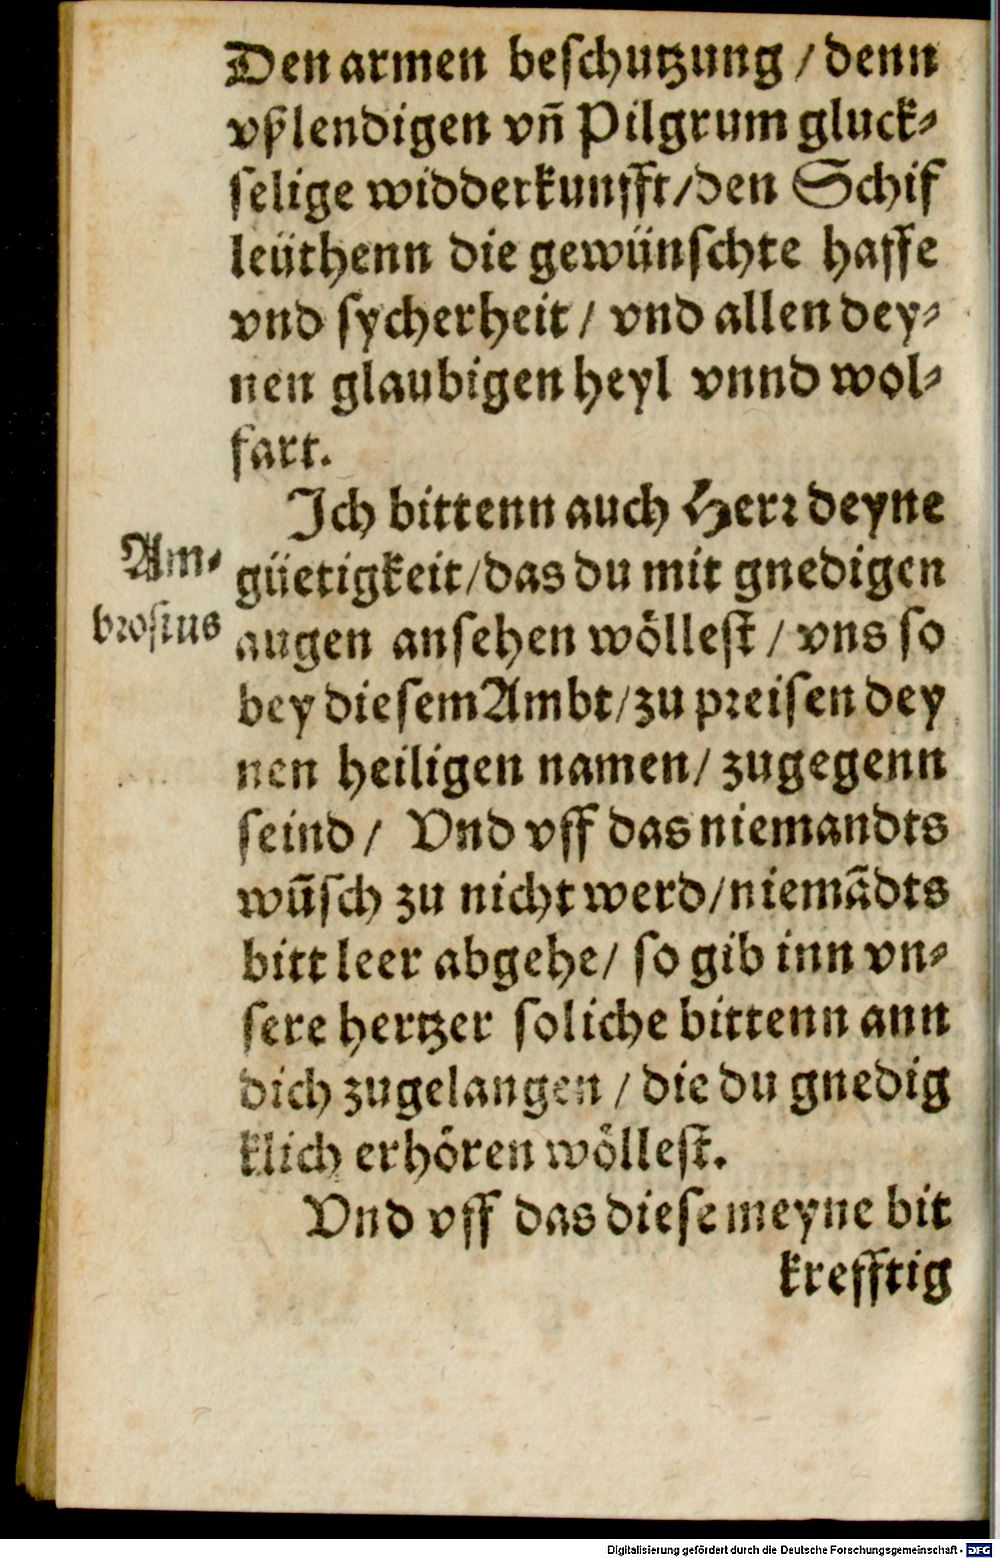 Den armen beſchutzung / denn
vßlendigen vñ Pilgrum gluck⸗
ſelige widderkunfft/den Schif
leüthenn die gewünſchte haffe
vnd ſycherheit / vnd allen dey⸗
nen glaubigen heyl vnnd wol⸗
fart.
Ich bittenn auch Herꝛ deyne
Am⸗
broſius
güetigkeit/das du mit gnedigen
augen anſehen wölleſt / vns ſo
bey dieſem Ambt/zu pꝛeiſen dey
nen heiligen namen/ zugegenn
ſeind / Vnd vff das niemandts
wūſch zu nicht werd/niemādts
bitt leer abgehe/ ſo gib inn vn⸗
ſere hertzer ſoliche bittenn ann
dich zugelangen / die du gnedig
klich erhören wölleſt.
Vnd vff das dieſe meyne bit
krefftig
Digitalisierung gefördert durch die Deutsche Forschungsgemeinschaft - DFG